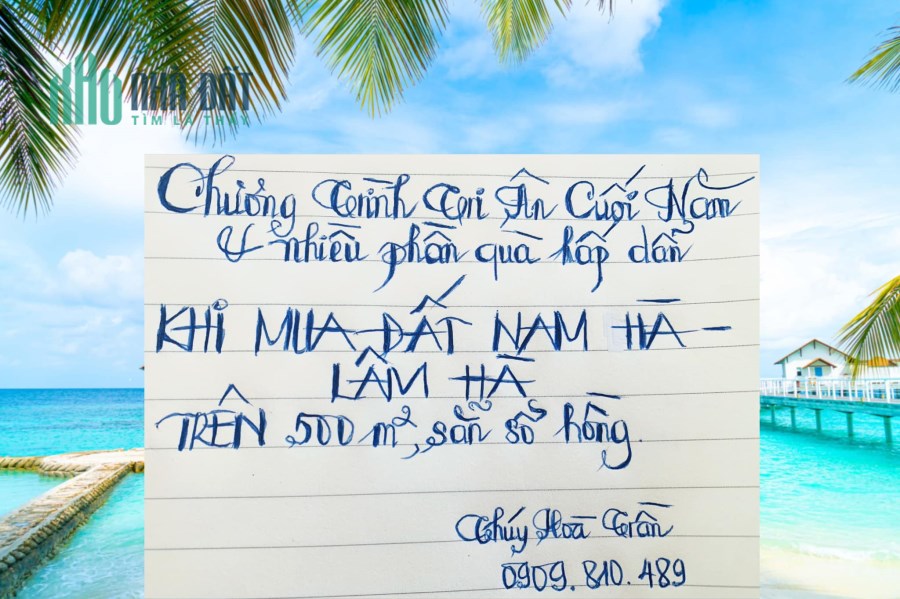 NHÀ ĐẤT
TÌM LÀ THẤY
Chương Trình Tri Ân Cuối Năm
& nhiều phần quà hấp dẫn
KHI MUA ĐẤT NAM HÀ -
LÂM HÀ
TRÊN 500 m², sẵn sổ hồng.
Thúy Hoà Trần
0909.810.489